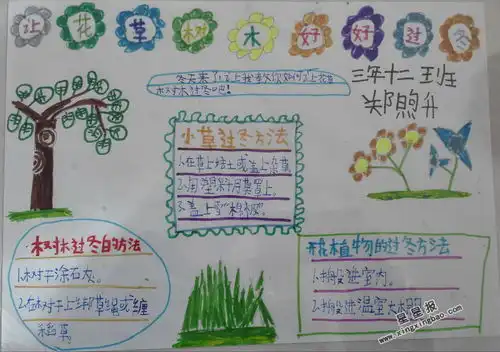 让花草树木好好过冬
冬天来了！
三年十二班
郑煦升
小草过冬方法
1.在草上培土或盖上杂草
2.用塑料月莫罩上。
3.盖上雪“棉被”。
树木过冬的方法
1.树干涂石灰。
2.在树干上绑草绳或缠
稻草。
开花植物的过冬方法
1.搬进室内。
2.搬进温室大棚。
星星报
www.xingxingbao.com